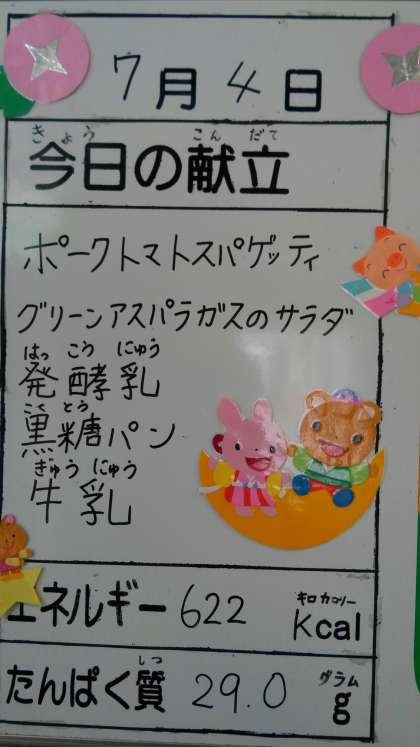 7月4日
きょう こんだて
今日の献立
ポークトマトスパゲッティ
グリーンアスパラガスのサラダ
はっ こう にゅう
発酵乳
こく とう
黒糖パン
ぎゅう にゅう
牛乳
キロカロリー
エネルギー 622 Kcal
しつ グラム
たんぱく質 29.0 g